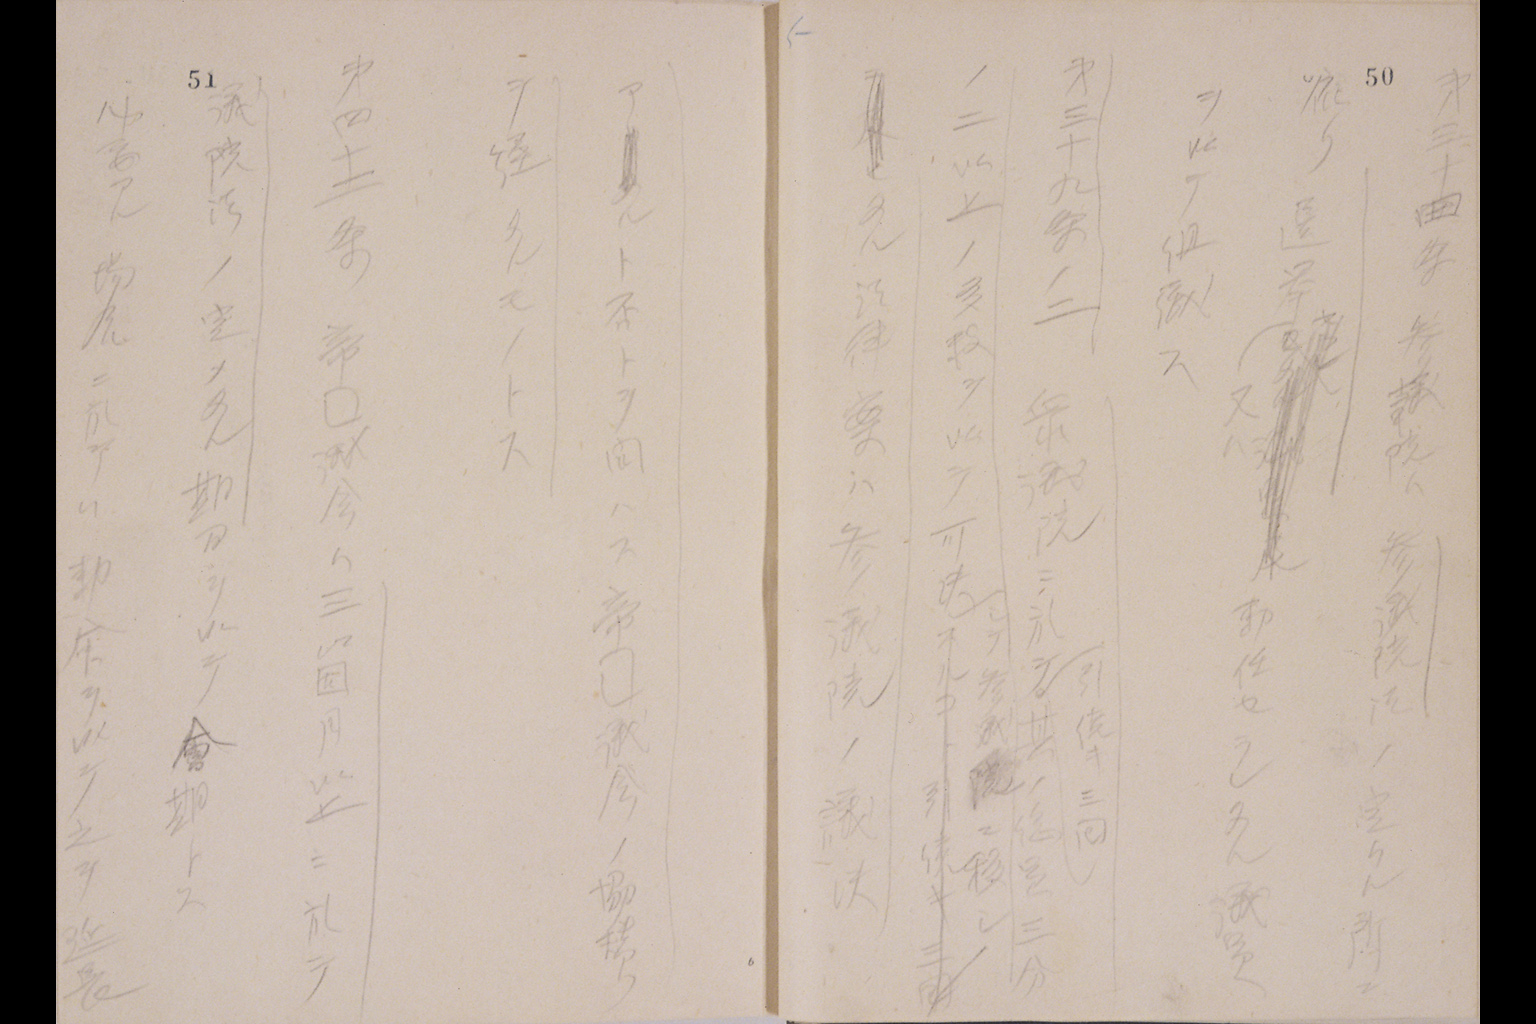 50
第三十四条 参議院ハ参議院法ノ定ムル所ニ
依リ選挙
又ハ 勅任セラレタル議員
ヲ以テ組織ス
第三十九条ノ二 衆議院ニ於テ其ノ総員三分
引続キ三回
ノ二以上ノ多数ヲ以テ可決
シテ参議院ニ移シ
引続キ三回
タル法律案ハ参議院ノ議決
51
アルト否トヲ問ハス帝国議会ノ協賛
ヲ経タルモノトス
第四十二条 帝国議会ハ三箇月以上ニ於テ
議院法ノ定メタル期間ヲ以テ會期トス
必要アル場合ニ於テハ勅命ヲ以テ之ヲ延長